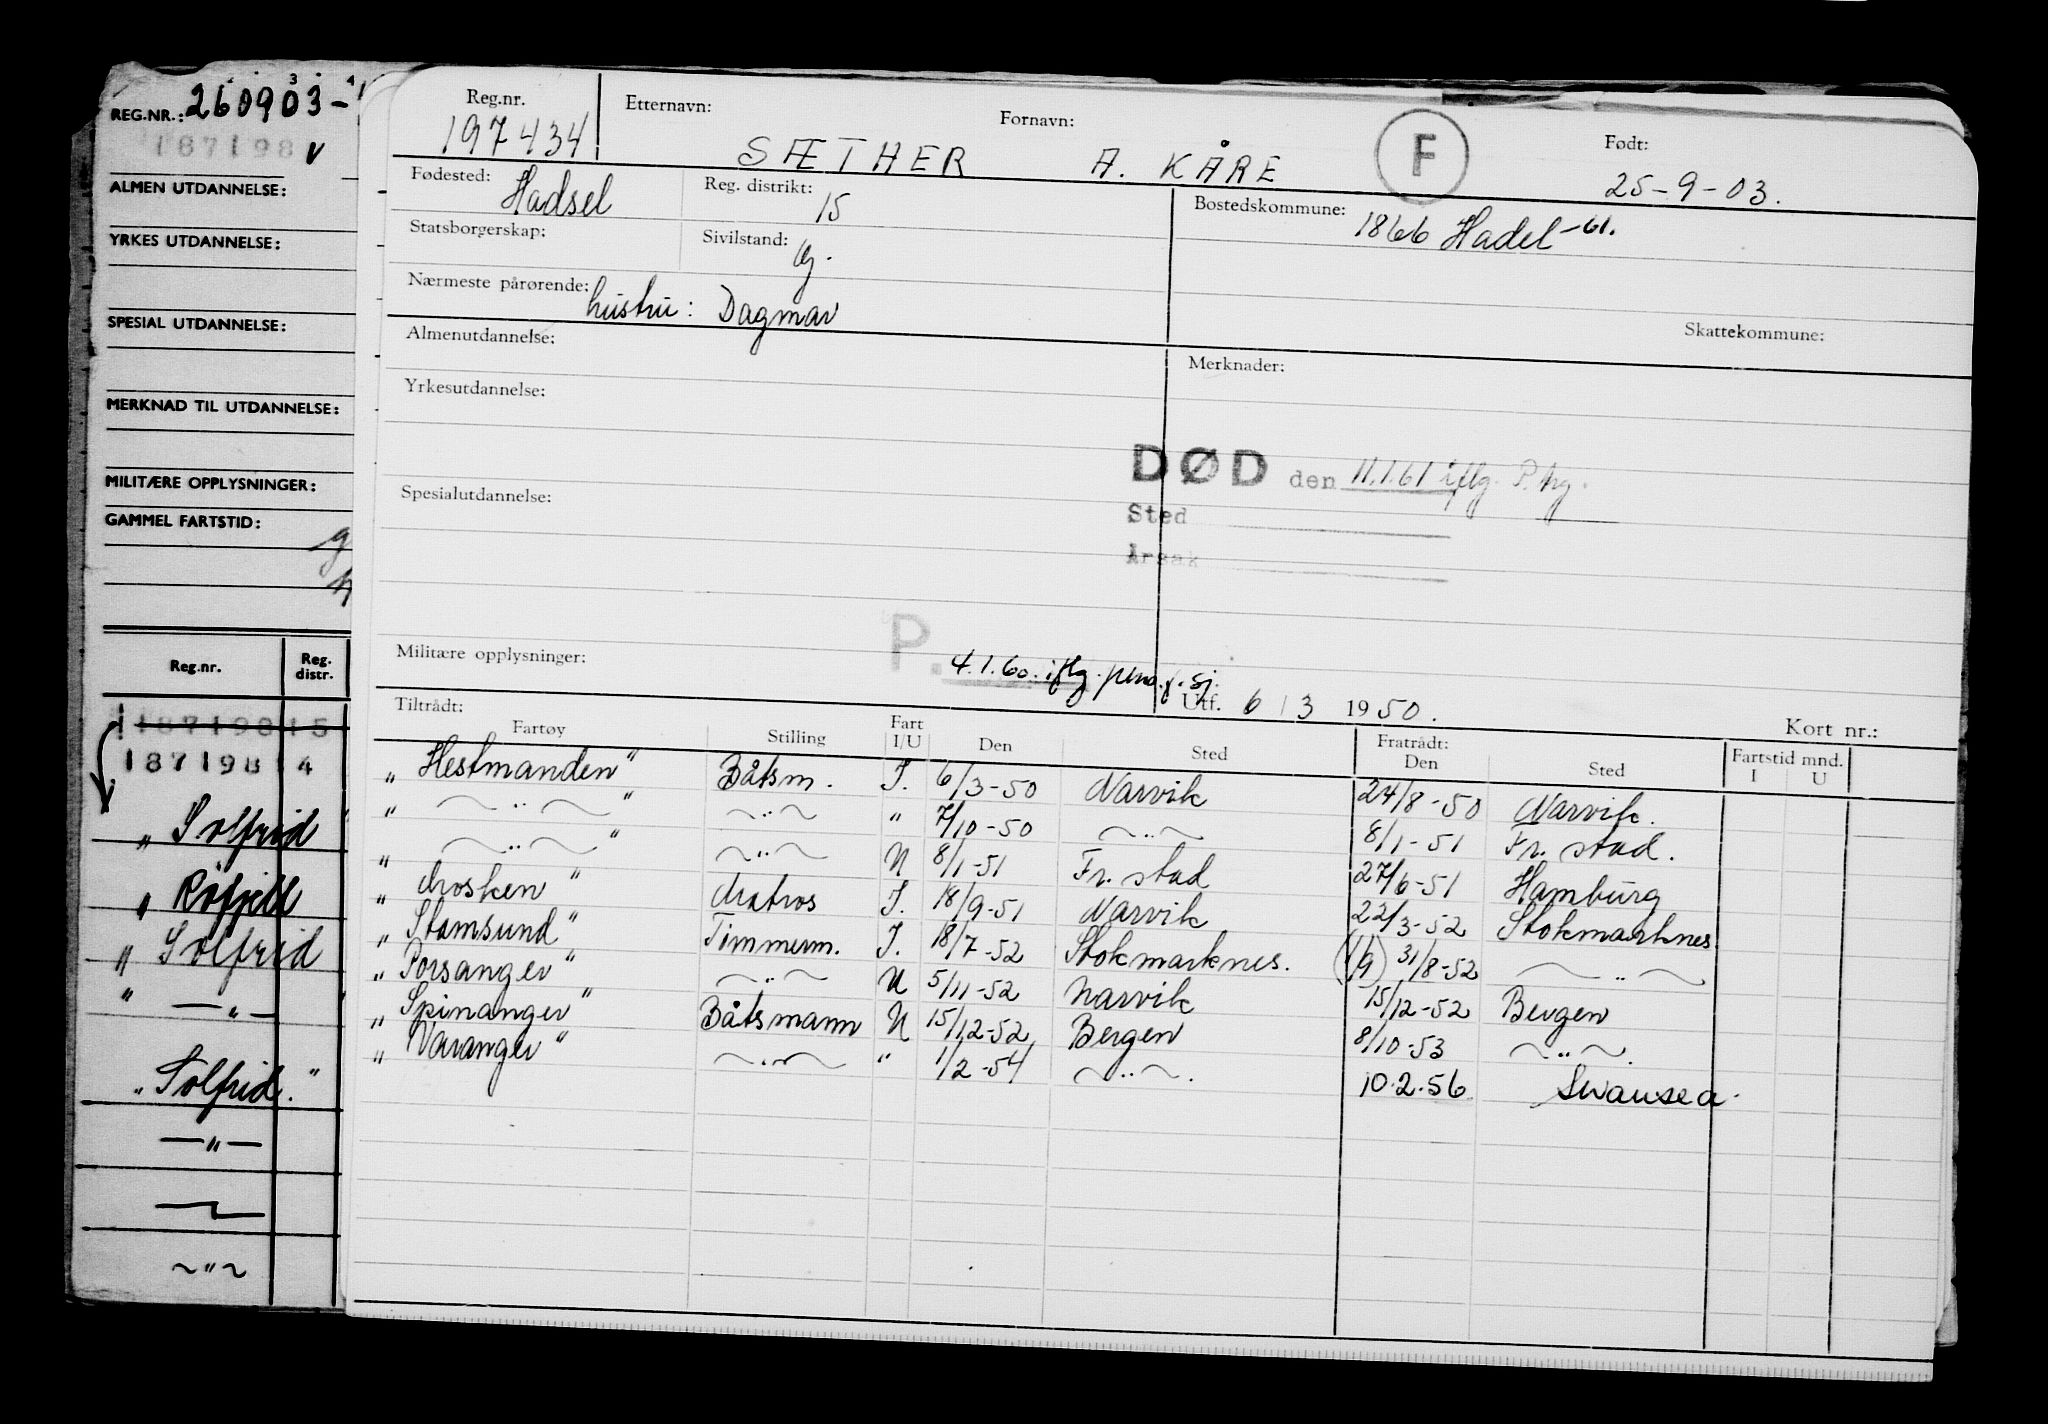 REG.NR.: 260903-
187198 v
ALMEN UTDANNELSE:
YRKES UTDANNELSE:
SPESIAL UTDANNELSE:
MERKNAD TIL UTDANNELSE:
MILITÆRE OPPLYSNINGER:
GAMMEL FARTSTID:
Reg.nr. Reg. distr.
187198 15
187198 4
„ Solfrid
„ Röfjell
„ Solfrid
" — „ —
„ Solfrid. "
— „ —
~ " ~
Reg.nr. Etternavn: Fornavn: F Født:
197434 SÆTHER A. KÅRE 25-9-03.
Fødested: Hadsel Reg. distrikt: 15 Bostedskommune: 1866 Hadel -61.
Statsborgerskap: Sivilstand: g.
Nærmeste pårørende: hustru: Dagmar
Skattekommune:
Almenutdannelse: Merknader:
Yrkesutdannelse:
DØD den 11.1.61 iflg. P.
Spesialutdannelse: Sted
Årsak
Militære opplysninger: P. 4.1.60. iflg. pens. f. sj.
Utf. 6/3 1950. Kort nr.:
Tiltrådt: Fratrådt: Fartstid mnd.
Fartøy Stilling Fart I/U Den Sted Den Sted I U
„ Hestmanden" Båtsm. I. 6/3-50 Narvik 24/8-50 Narvik.
„ ~ .. ~ " ~ .. ~ " 7/10-50 ~ .. ~ 8/1-51 Fr. stad.
„ ~ .. ~ " ~ .. ~ U 8/1-51 Fr. stad 27/6-51 Hamburg
„ Mosken " Matros I. 18/9-51 Narvik 22/3-52 Stokmarknes
„ Stamsund" Timmerm. I. 18/7-52 Stokmarknes. (1/9) 31/8-52 ~ .. ~
„ Porsanger" ~ .. ~ U 5/11-52 Narvik 15/12-52 Bergen
„ Spinanger" Båtsmann U 15/12-52 Bergen 8/10-53 ~ .. ~.
„ Varanger" ~ .. ~ " 1/2-54 ~ .. ~. 10.2.56 Swansea.